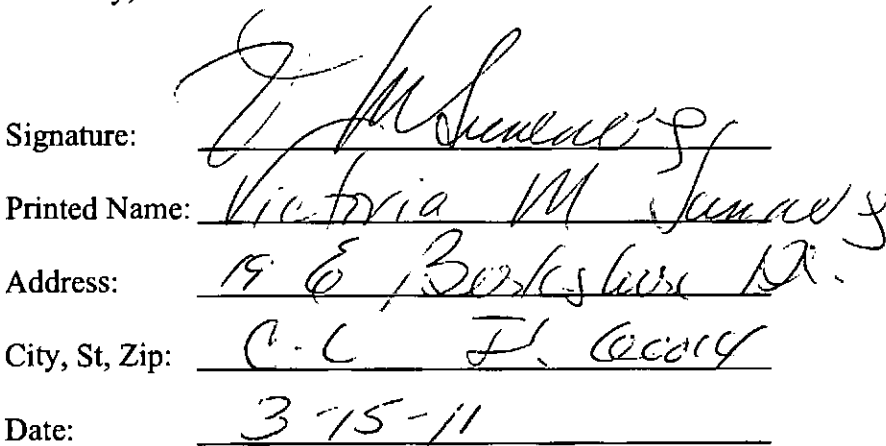 Signature:
Printed Name: Victoria M
Address: 19 E Berkshire Dr.
City, St, Zip: C.L Il. 60014
Date: 3-15-11